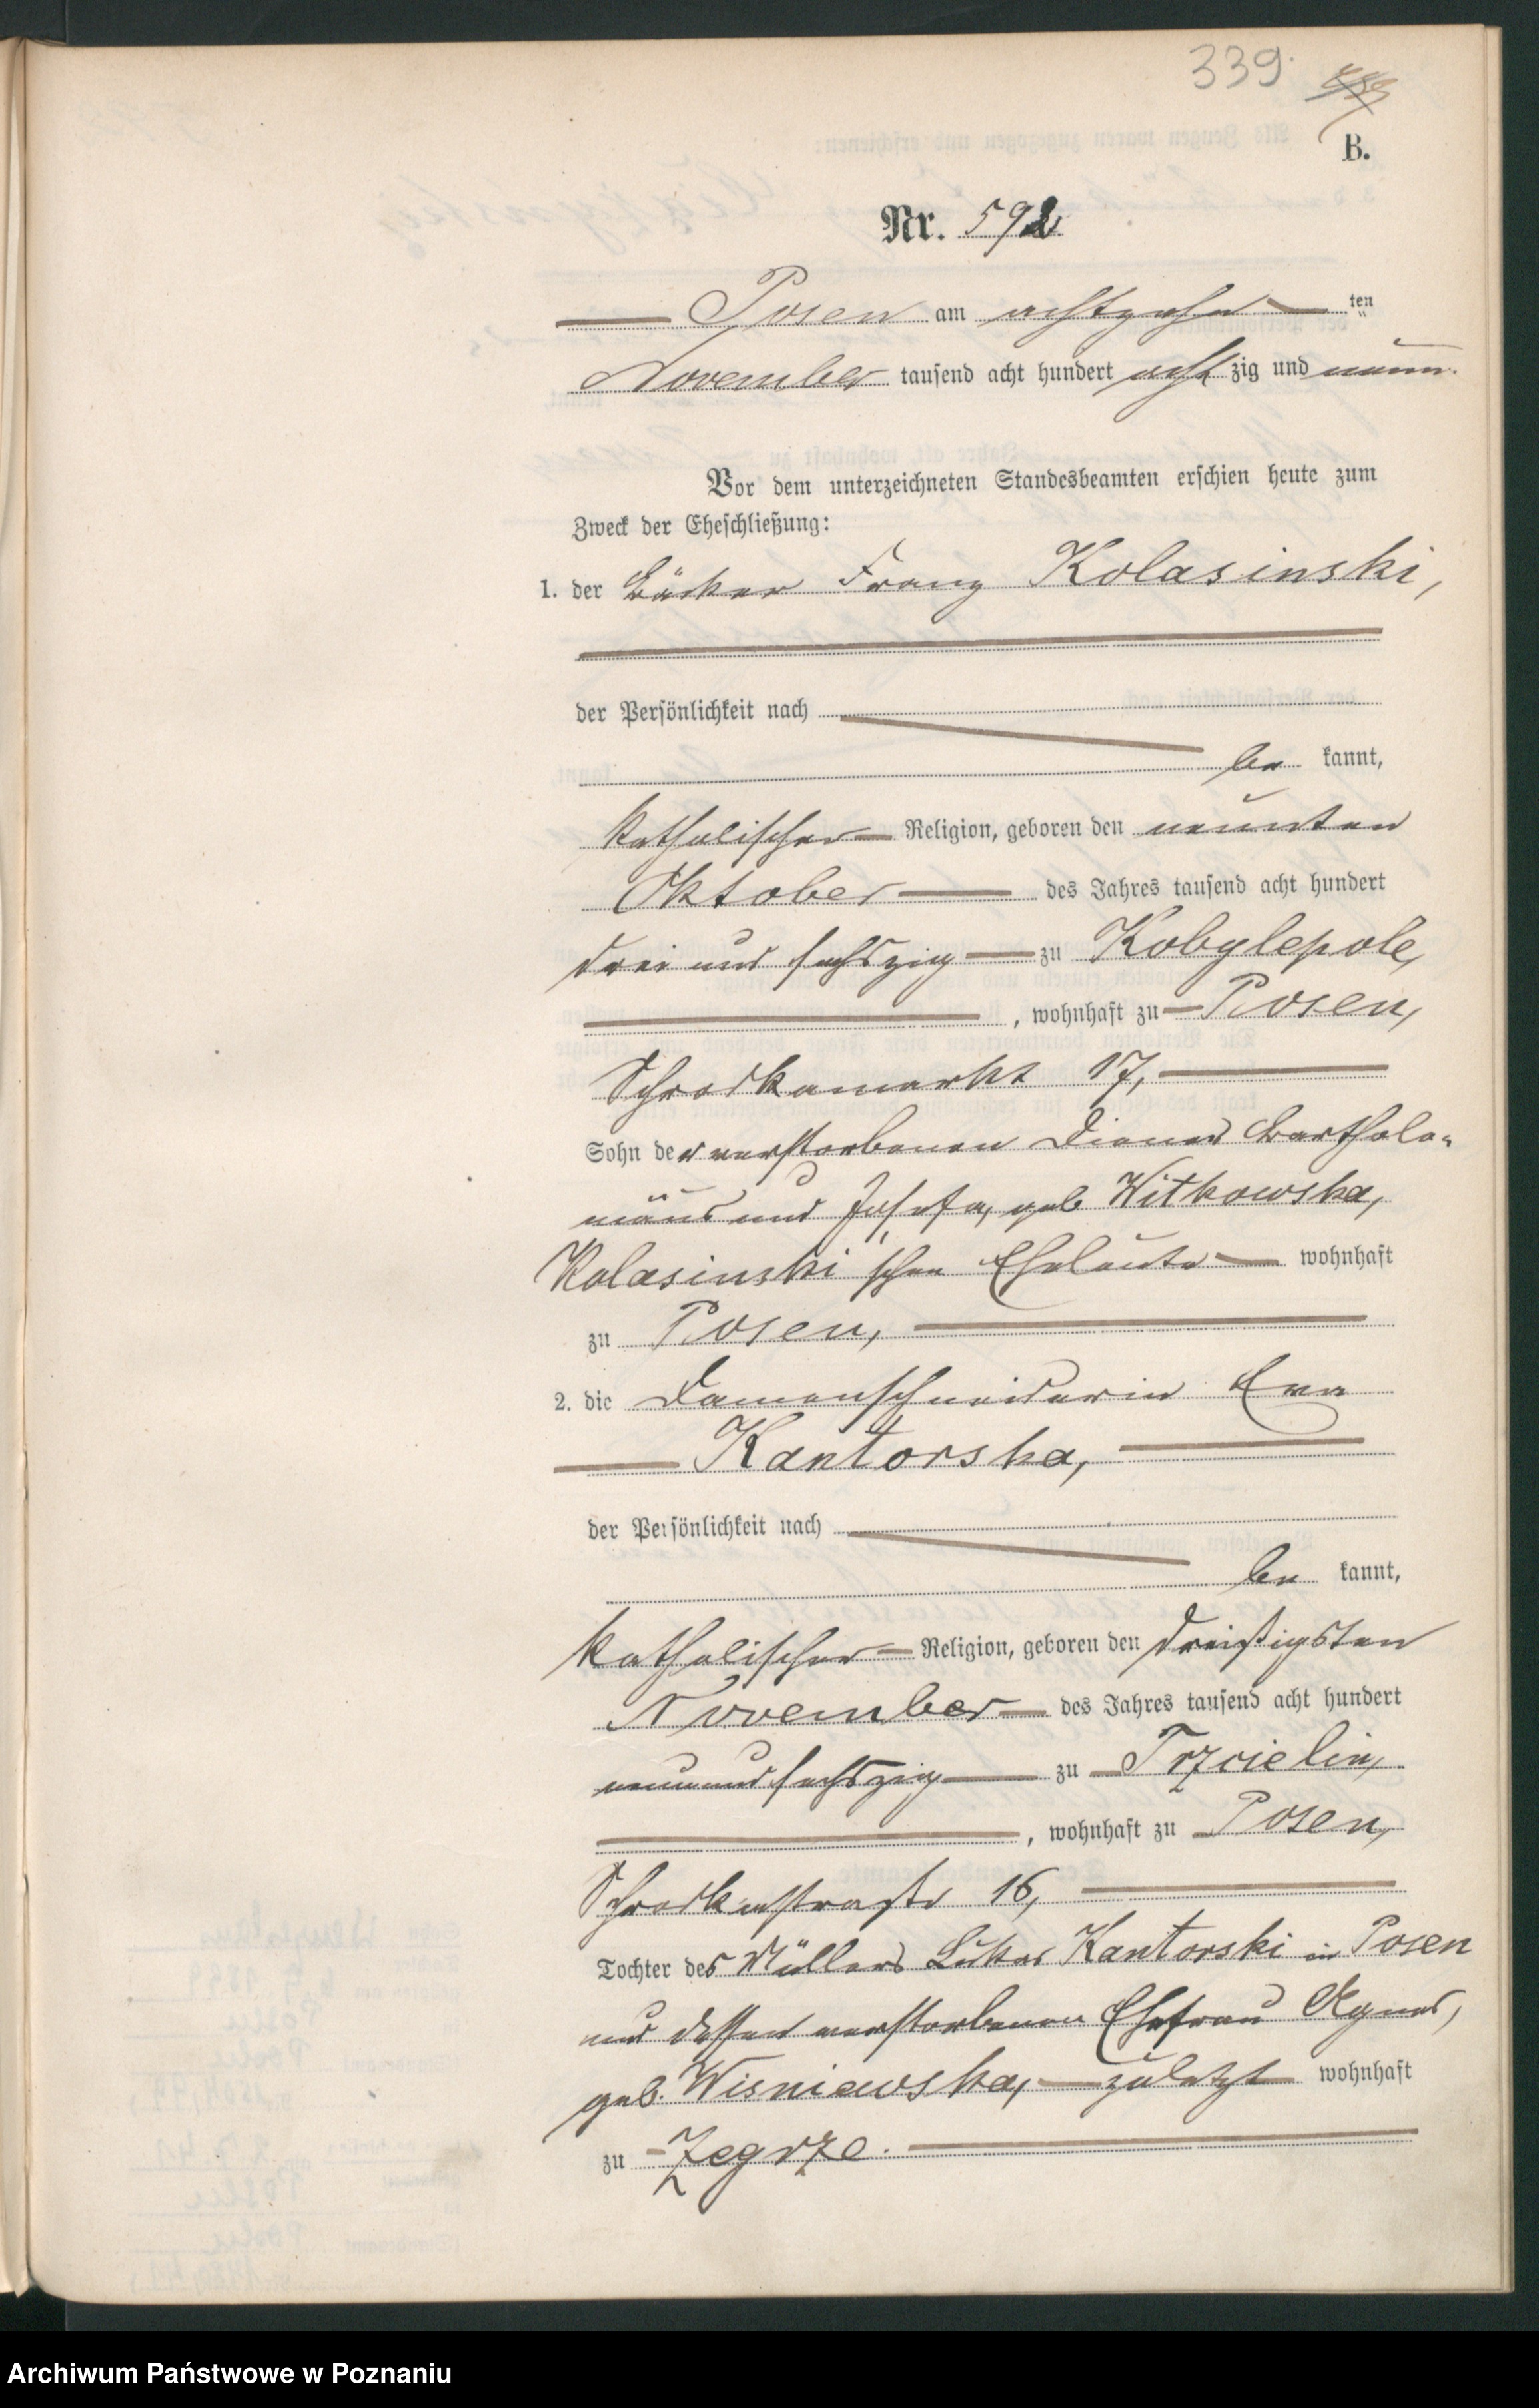 339.
B.
Nr. 592
Posen am achtzehn ten
November tausend acht hundert acht zig und neun.
Vor dem unterzeichneten Standesbeamten erschien heute zum
Zweck der Eheschließung:
1. der Bäcker Franz Kolasinski,
der Persönlichkeit nach
be kannt,
katholischer Religion, geboren den neunten
Oktober des Jahres tausend acht hundert
drei und sechszig zu Kobylepole,
, wohnhaft zu Posen,
Schrodkamarkt 17,
Sohn der verstorbenen Diener Bartholo-
mäus und Josefa, geb Witkowska,
Kolasinski'schen Eheleute wohnhaft
zu Posen,
2. die Damenschneiderin Eva
Kantorska,
der Persönlichkeit nach
be kannt,
katholischer Religion, geboren den dreißigsten
November des Jahres tausend acht hundert
neun und sechszig zu Trzcielin,
, wohnhaft zu Posen,
Schrodkastraße 16,
Tochter des Müllers Lukas Kantorski in Posen
und dessen verstorbenen Ehefrau Agnes,
geb. Wisniewska, zuletzt wohnhaft
zu Zegrze.
Archiwum Państwowe w Poznaniu